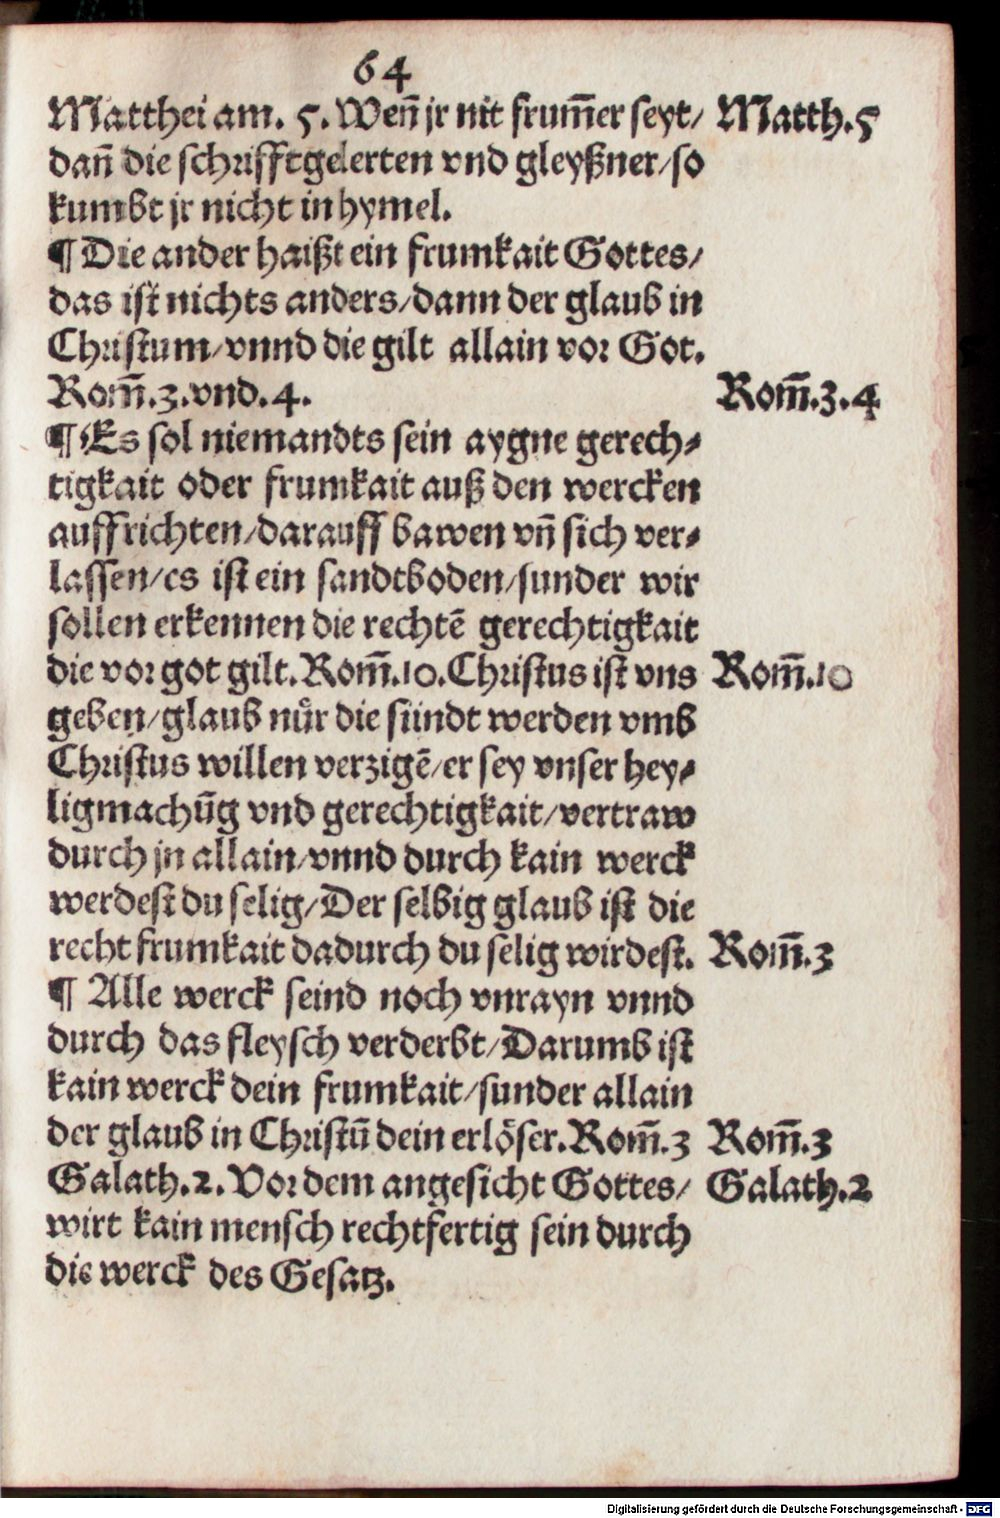 64
Matthei am. 5. Weñ jr nit frum̄er seyt/ Matth.5
dañ die schrifftgelerten vnd gleyßner/so
kumbt jr nicht in hymel.
¶ Die ander haißt ein frumkait Gottes/
das ist nichts anders/dann der glaub in
Christum/vnnd die gilt allain vor Got.
Rom̄.3.vnd.4. Rom̄.3.4
¶ Es sol niemandts sein aygne gerech⸗
tigkait oder frumkait auß den wercken
auffrichten/darauff bawen vñ sich ver⸗
lassen/es ist ein sandtboden/sunder wir
sollen erkennen die rechtē gerechtigkait
die vor got gilt.Rom̄.10.Christus ist vns Rom̄.10
geben/glaub nuͤr die sündt werden vmb
Christus willen verzigē/er sey vnser hey⸗
ligmachūg vnd gerechtigkait/vertraw
durch jn allain/vnnd durch kain werck
werdest du selig/Der selbig glaub ist die
recht frumkait dadurch du selig wirdest. Rom̄.3
¶ Alle werck seind noch vnrayn vnnd
durch das fleysch verderbt/Darumb ist
kain werck dein frumkait/sunder allain
der glaub in Christū dein erlöser.Rom̄.3 Rom̄.3
Galath.2.Vor dem angesicht Gottes/ Galath.2
wirt kain mensch rechtfertig sein durch
die werck des Gesatz.
Digitalisierung gefördert durch die Deutsche Forschungsgemeinschaft - DFG